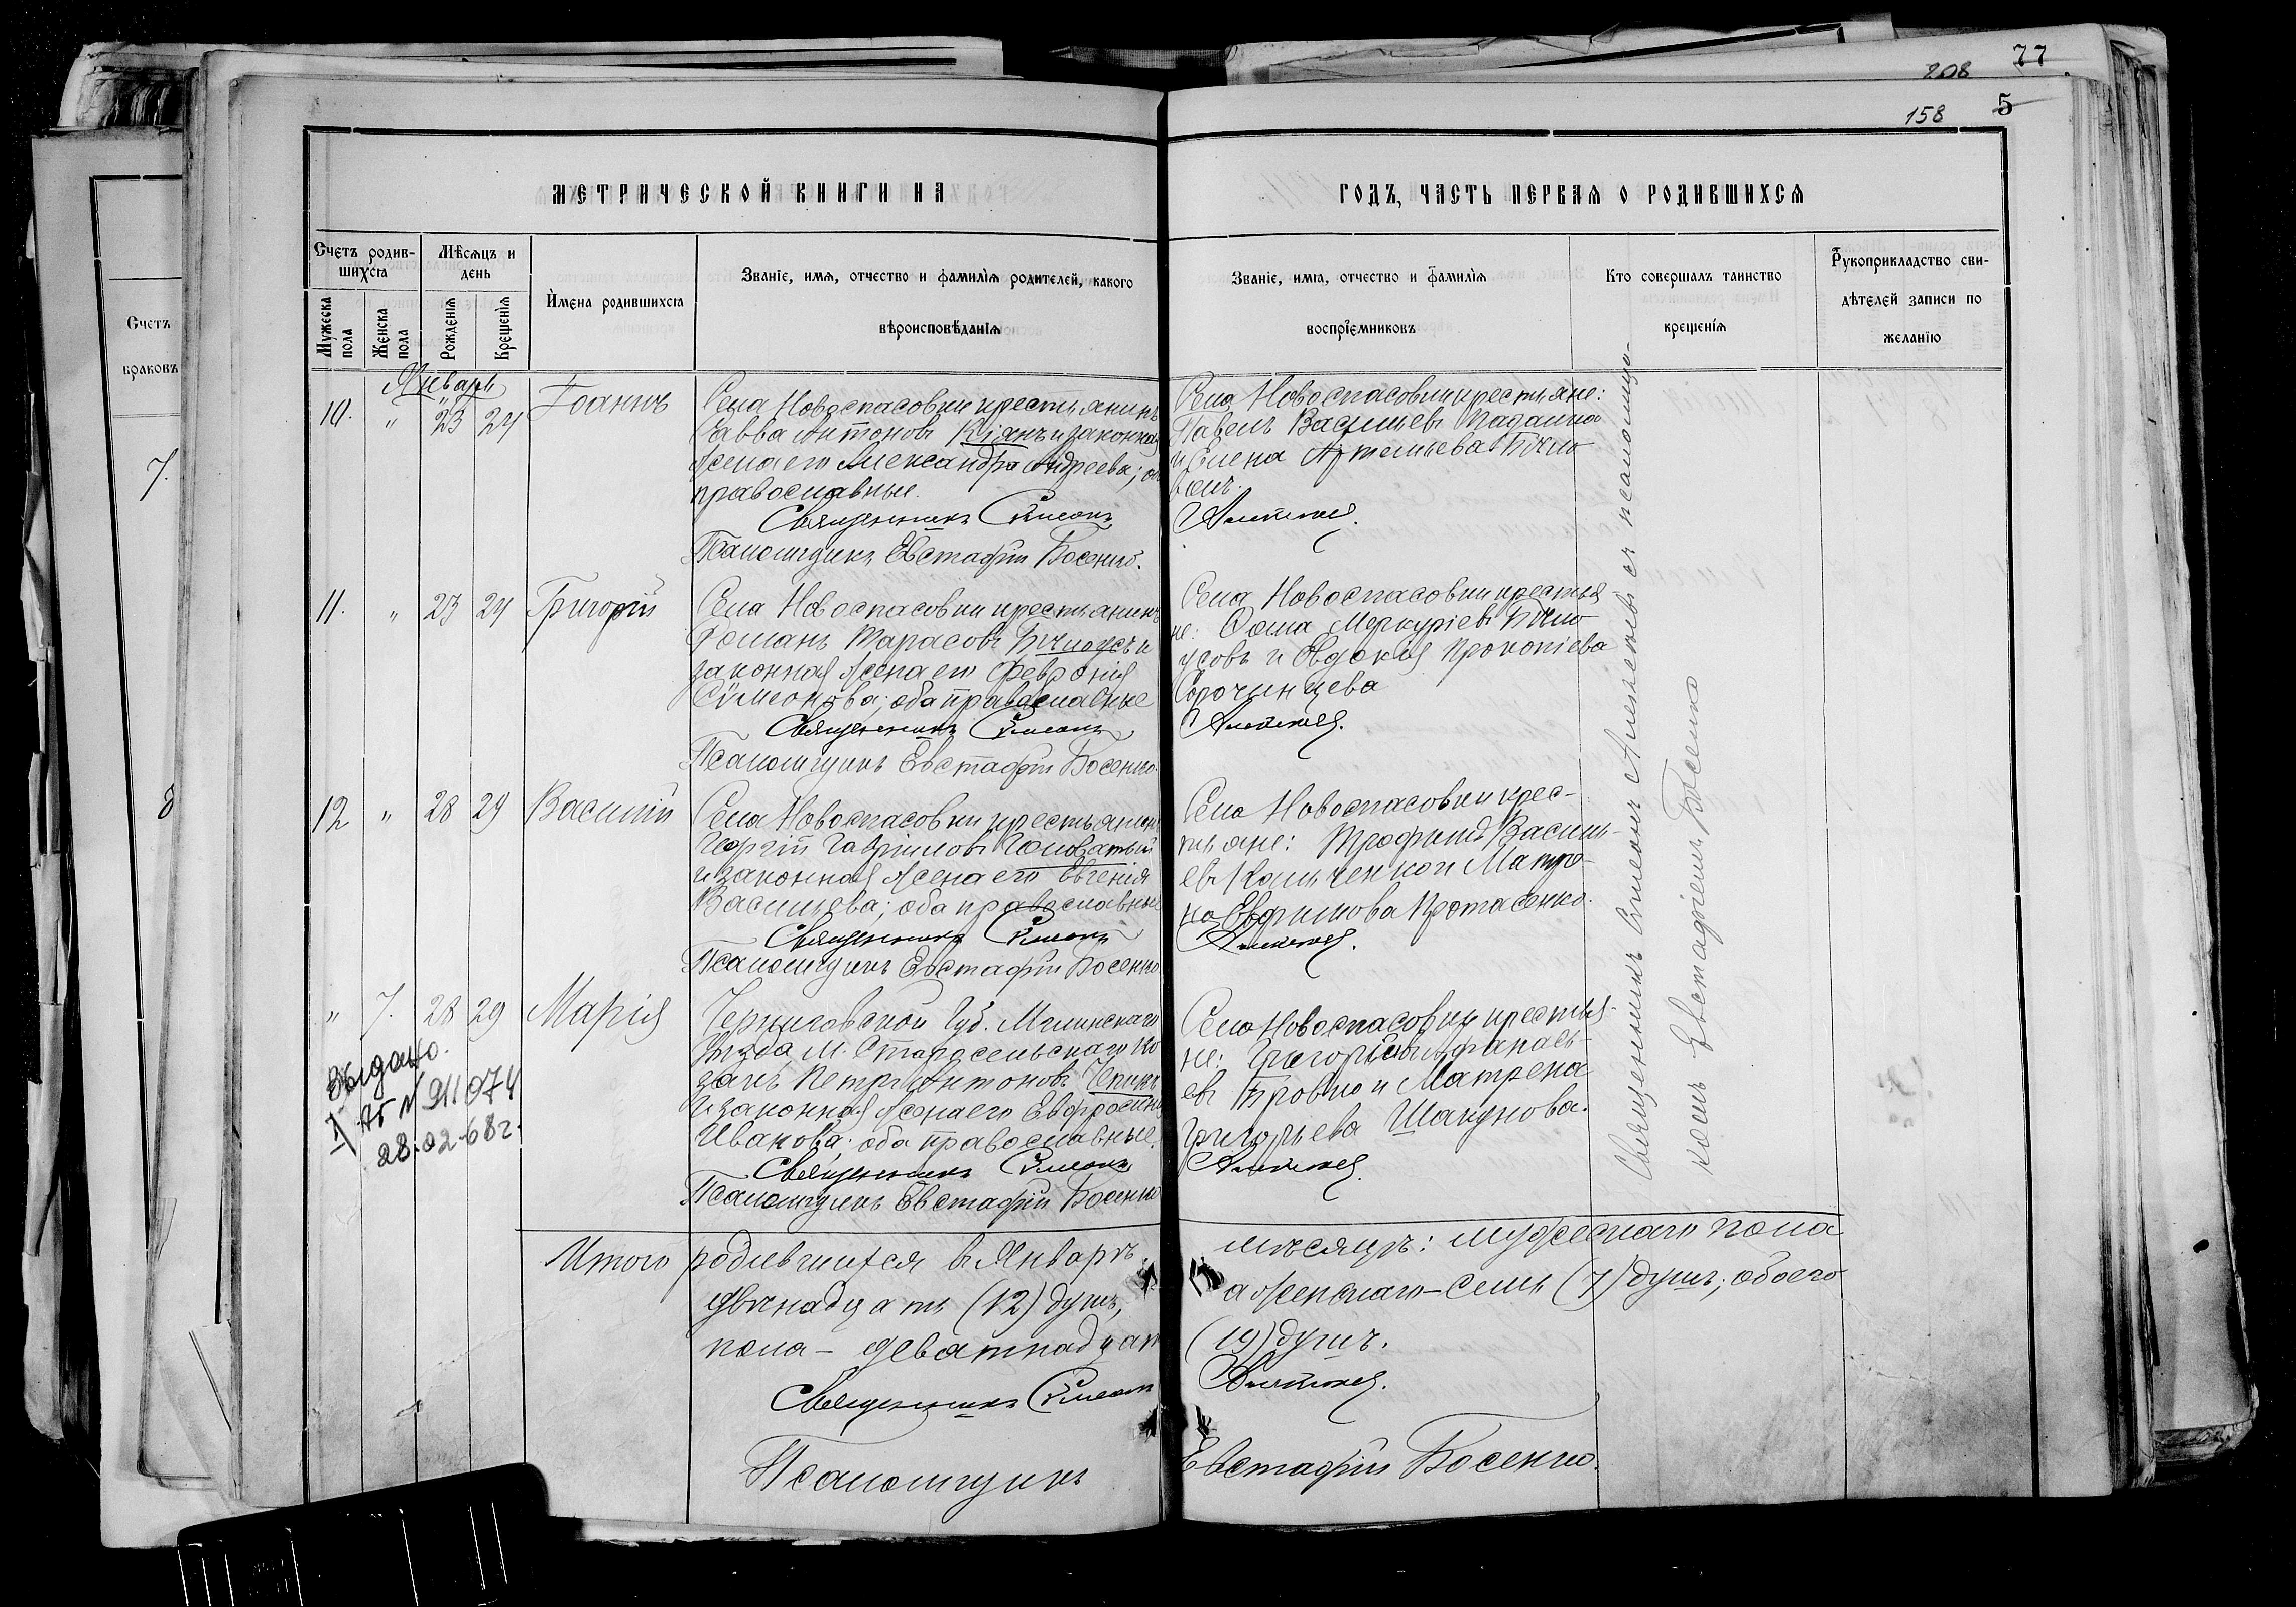 77
208
158 5
МЕТРИЧЕСКОЙ КНИГИ НА ГОДЪ, ЧАСТЬ ПЕРВАЯ О РОДИВШИХСЯ
Счетъ родив-
шихся
Мужеска пола
Женска пола
Мѣсяцъ и
день
Рожденія
Крещенія
Имена родившихся
Званіе, имя, отчество и фамилія родителей, какого
вѣроисповѣданія
Званіе, имя, отчество и фамилія
воспріемниковъ
Кто совершалъ таинство
крещенія
Рукоприкладство сви-
дѣтелей записи по
желанію
Счетъ
браковъ
7.
8
Январь
10. " 23 24 Іоаннъ
Села Новоспасовки крестьянинъ
Савва Антоновъ Кіянъ и законная
жена его Александра Андреева; оба
православные.
Священникъ Симеонъ
Псаломщикъ Евстафій Босенко.
Села Новоспасовки крестьяне:
Павелъ Васильевъ Падалка
и Елена Артемьева
Алексеев.
11. " 23 24 Григорій
Села Новоспасовки крестьянинъ
Романъ Тарасовъ Бѣлоусъ и
законная жена его Феврония
Симеонова; оба православные
Священникъ Симеонъ
Псаломщикъ Евстафій Босенко.
Села Новоспасовки крестья
не: Фома Меркуріевъ Бѣло
усовъ и Евдокія Прокопіева
Сорочинцева
12 " 28 29 Василій
Села Новоспасовки крестьянинъ
Георгій Гавриловъ Головатый
и законная жена его Евгенія
Васильева; оба православные
Священникъ Симеонъ
Псаломщикъ Евстафій Босенко
Села Новоспасовки крес-
тьяне: Трофимъ Василь-
евъ и Матро-
на Евфимова Протасенко.
" 7. 28 29 Марія
Черниговской Губ. Мглинскаго
уѣзда М. Старосельскаго ко
закъ Петръ Антоновъ Чепикъ
и законная жена его Евфросинія
Иванова; оба православные.
Священникъ Симеонъ
Псаломщикъ Евстафій Босенко
Села Новоспасовки крестья-
не: Григорій Афанась-
евъ и Матрена
Григорьева Шакунова.
Выдано.
911074
28.02-68г.
Священникъ Симеонъ съ псаломщи-
комъ Евстафіемъ Босенко
Итого родившихся въ Январѣ мѣсяцѣ: мужескаго пола
двѣнадцать (12) душъ, а женскаго – семь (7) душъ; обоего
пола – девятнадцать (19) душъ.
Священникъ Симеонъ
Псаломщикъ Евстафій Босенко.